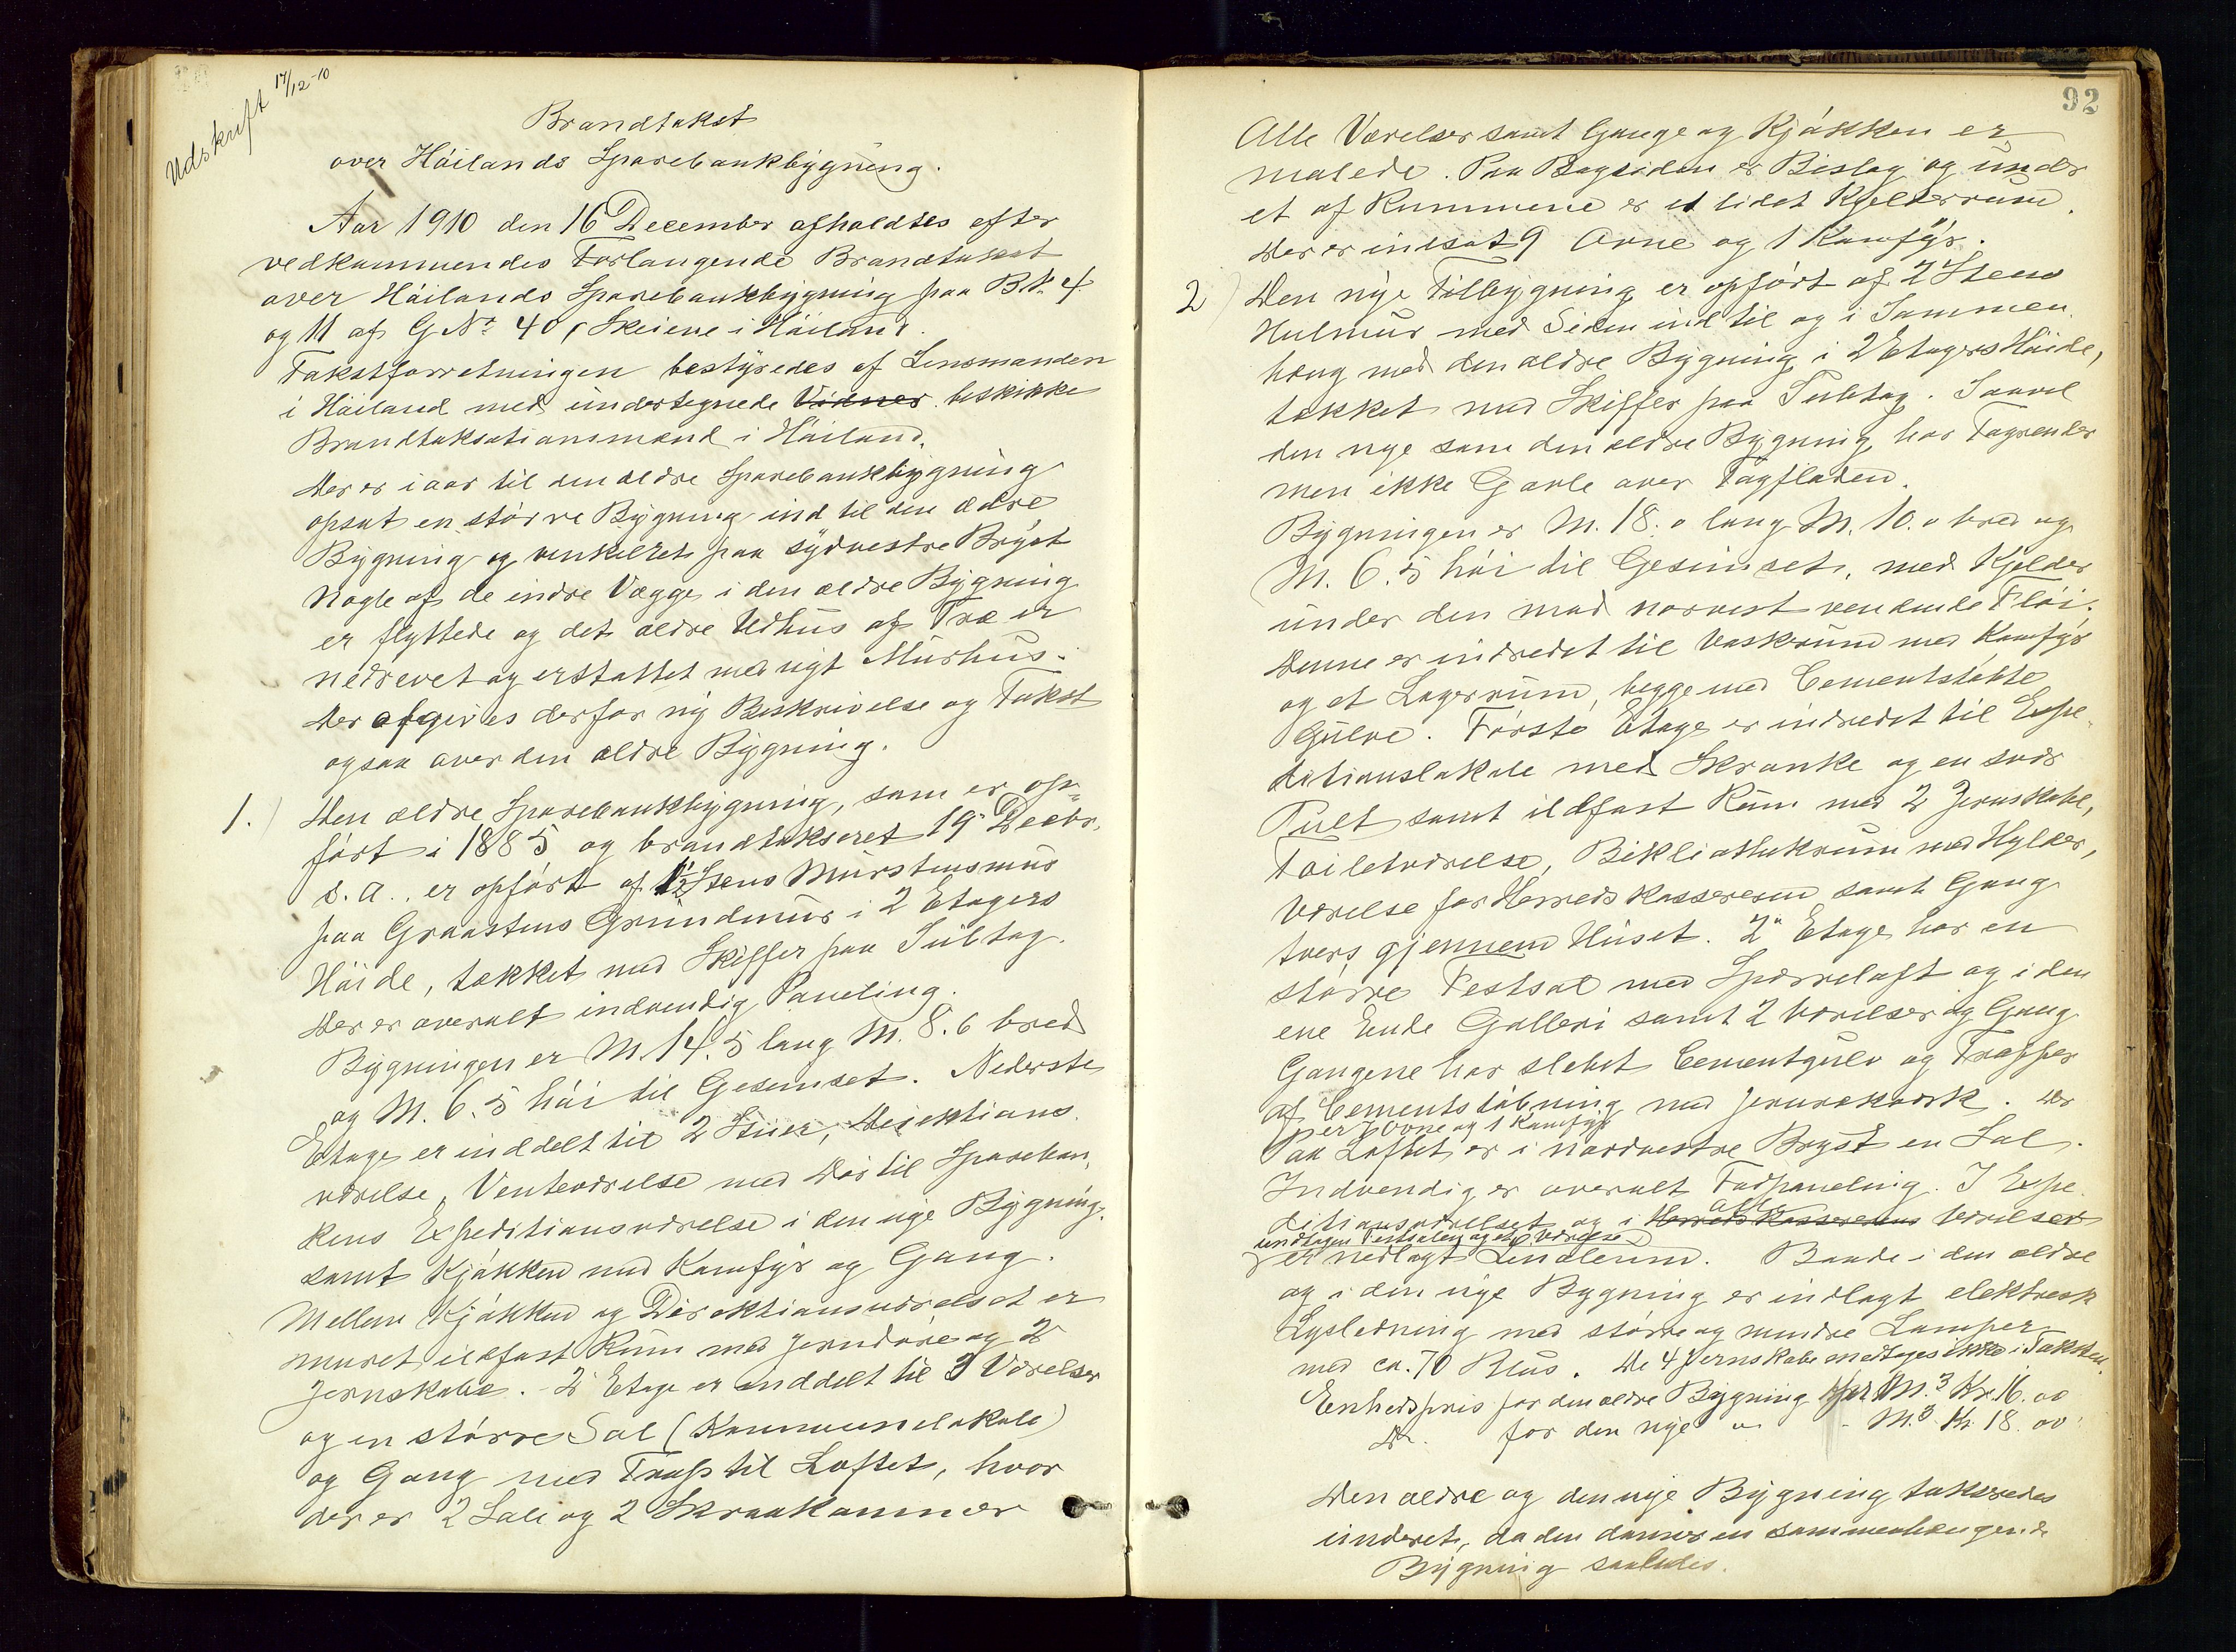 Udskrift 17/12-10
Brandtakst
over Höilands Sparebankbygning.
Aar 1910 den 16 December afholdtes efter
vedkommendes Forlangende Brandtakst
over Höilands Sparebankbygning paa B.N. 4
og 11 af G.No 40, Skeiene i Höiland.
Takstforretningen bestyredes af Lensmanden
i Höiland med undertegnede Vidner beskikke
Brandtaksationsmænd i Höiland.
Der er i aar til den ældre Sparebankbygning
opsat en större Bygning ind til den ældre
Bygning og vinkelret paa sydvestre Bryst
Nogle af de indre Vægge i den ældre Bygning
er flyttede og det ældre Udhus af Træ er
nedrevet og erstattet med nyt Murhus.
Der afgives derfor ny Beskrivelse og Takst
ogsaa over den ældre Bygning.
1.) Den ældre Sparebankbygning, som er op-
fört i 1885 og brandtakseret 19 Decbr.
s. a.. er opfört af 1 1/2 Stens Murstensmur
paa Graastens Grundmur i 2 Etagers
Höide, tækket med Skiffer paa Sultag.
Der er overalt indvendig Paneling.
Bygningen er M. 14.5 lang M. 8.6 bred
og M. 6.5 höi til Gesimset. Nederste
Etage er inddelt til 2 Stuer, Direktions
værelse, Venteværelse med Dör til Spareban,
kens Expeditionsværelse i den nye Bygning,
samt Kjökken med Komfyr og Gang.
Mellem Kjökken og Direktionsværelset er
muret ildfast Rum med Jerndöre og 2
Jernskabe. - 2' Etage er inddelt til 3 Værelser
og en större Sal (Kommunelokale)
og Gang med Trap til Loftet, hvor
der er 2 Sale og 2 Skraakammer
92
Alle Værelser samt Gange og Kjökken er
malede. Paa Bagsiden er Bislag og under
et af Rummene er et lidet Kjelderrum.
Der er indsat 9 Ovne og 1 Komfyr.
2) Den nye Tilbygning er opfört af 2 Stens
Hulmur med Siden ind til og i Sammen
hæng med den ældre Bygning i 2 Etagers Höide,
tækket med Skiffer paa Sultag. Saavel
den nye som den ældre Bygning har Tagrender
men ikke Gavle over Tagfladen.
Bygningen er M. 18.0 lang M. 10.0 bred og
M. 6.5 höi til Gesimset, med Kjelder
under den mod norvest vendende Flöi.
Denne er indredet til Vaskerum med Komfyr
og et Lagerrum, begge med Cementstöbte
Gulve. Förste Etage er indredet til Expe-
ditionslokale med Skranke og en svær
Pult samt ildfast Rum med 2 Jernskabe,
Toiletværelse, Bibliothekrum med Hylder,
Værelse for Herredskassereren samt Gang
tvers gjennem Huset. 2' Etage har en
större Festsal med Sparreloft og i den
ene Ende Galleri samt 2 Værelser og Gang
Gangene har slebet Cementgulv og Trapper
af Cementstöbning med Jernrekværk. Der
er 7 Ovne og 1 Komfyr
Paa Loftet er i nordvestre Bryst en Sal.
Indvendig er overalt Fadpaneling. I Expe-
alle
ditionsværelset og i Herredskassererens Værelser
undtagen Festsalen og et Værelse
er nedlagt Linoleum. Baade i den ældre
og i den nye Bygning er indlagt elektrisk
Lysledning med större og mindre Lamper
med ca. 70 Blus. De 4 Jernskabe medtages ikke i Taksten.
Enhedspris for den ældre Bygning per M.3 Kr. 16.00
Do. for den nye " - M.3 Kr 18.00
Den ældre og den nye Bygning takseredes
underet, da den danner en sammenhængende
Bygning saaledes.